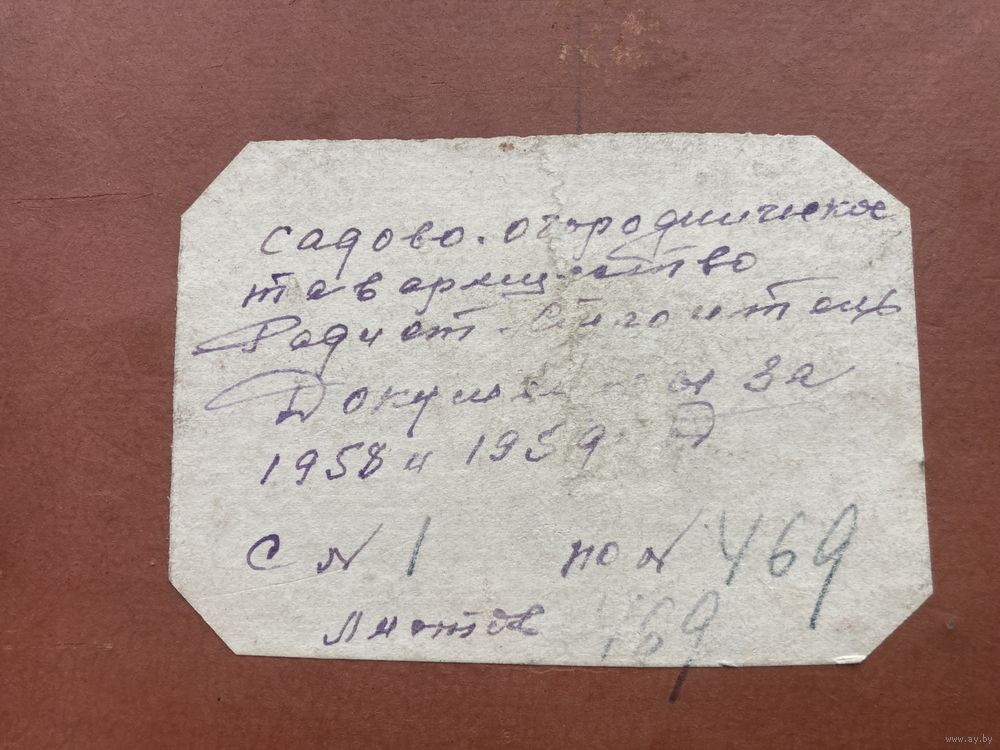 садово-огородническое
товарищество
Радист-
Документы за
1958 и 1959
с N 1 по N 469
Листов 469
www.ay.by